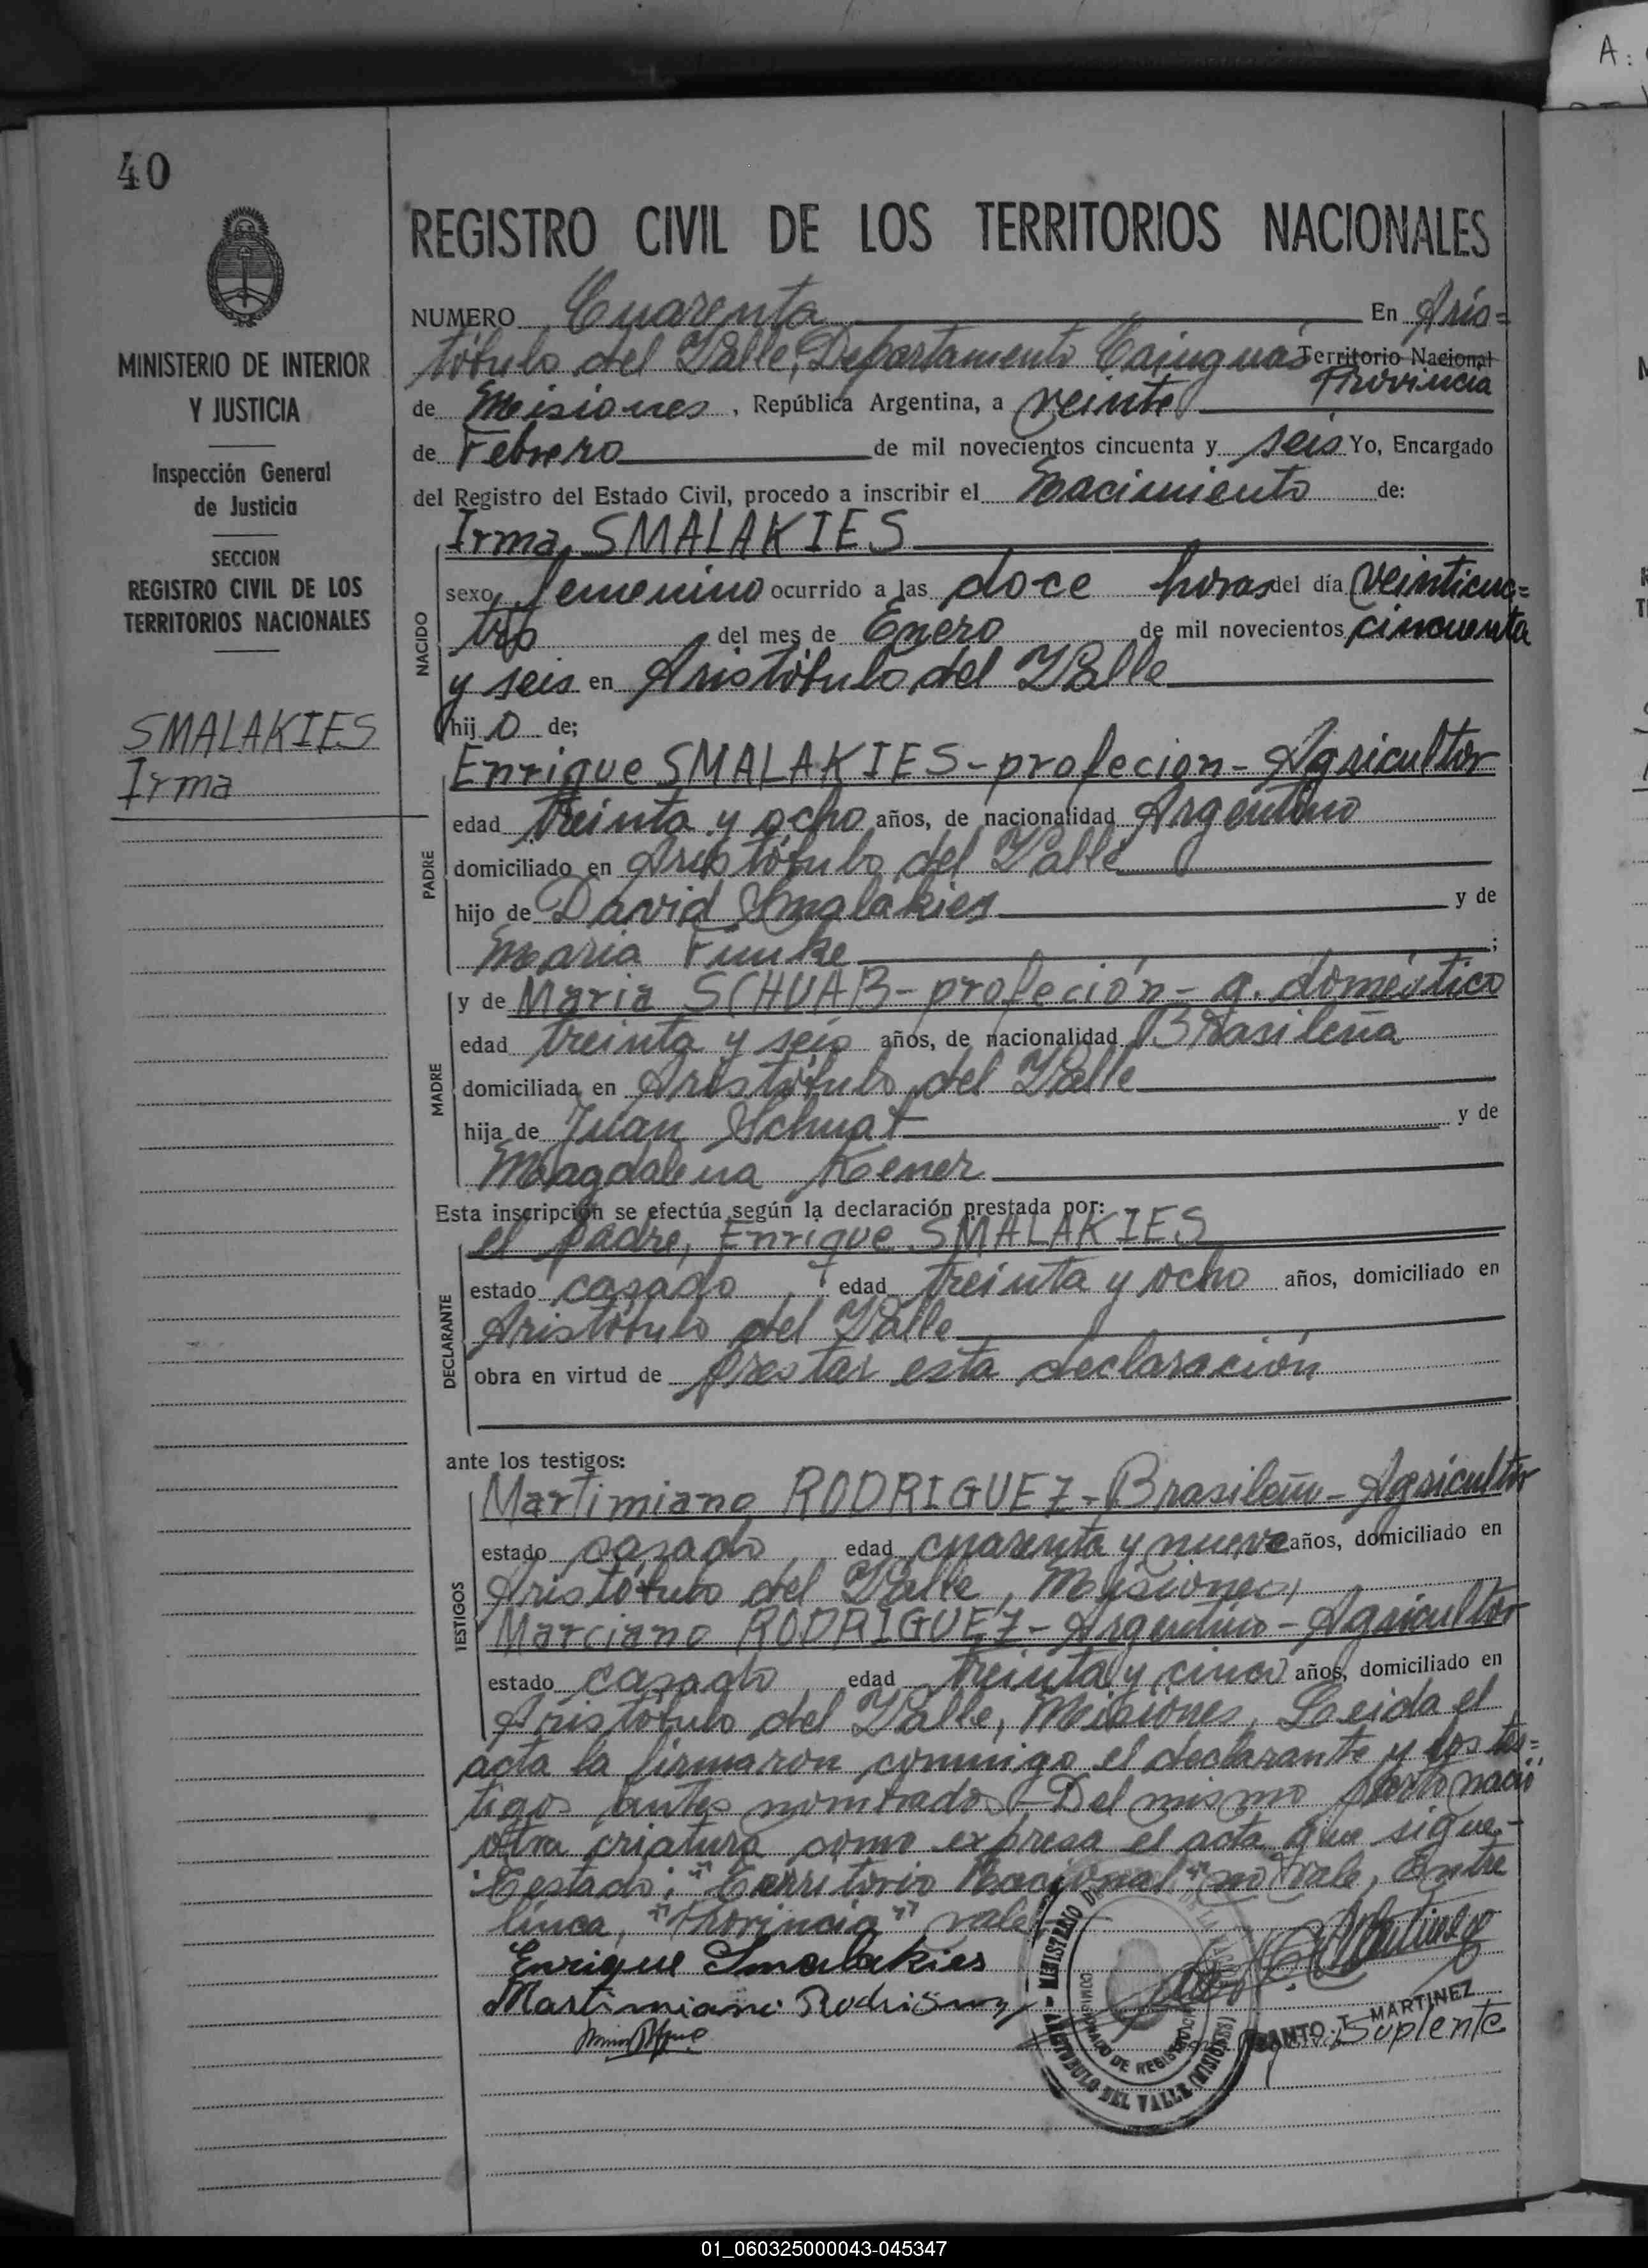 40
MINISTERIO DE INTERIOR
Y JUSTICIA
Inspección General
de Justicia
SECCION
REGISTRO CIVIL DE LOS
TERRITORIOS NACIONALES
SMALAKIES
Irma
REGISTRO CIVIL DE LOS TERRITORIOS NACIONALES
NUMERO Cuarenta En Aris=
tóbulo del Valle, Departamento Cainguás Territorio Nacional
Provincia
de Misiones, República Argentina, a veinte
de Febrero de mil novecientos cincuenta y seis Yo, Encargado
del Registro del Estado Civil, procedo a inscribir el Nacimiento de:
Irma, SMALAKIES
NACIDO
sexo femenino ocurrido a las doce horas del día veinticua=
tro del mes de Enero de mil novecientos cincuenta
y seis en Aristóbulo del Valle
hij a de;
PADRE
Enrique SMALAKIES - profecion - Agricultor
edad treinta y ocho años, de nacionalidad Argentino
domiciliado en Aristóbulo del Valle
hijo de David Smalakies y de
Maria Funke ;
MADRE
y de Maria SCHUAB - profeción - q. doméstico
edad treinta y seis años, de nacionalidad Brasileña
domiciliada en Aristóbulo del Valle
hija de Juan y de
Magdalena Kener
Esta inscripción se efectúa según la declaración prestada por:
DECLARANTE
el padre, Enrique SMALAKIES
estado casado edad treinta y ocho años, domiciliado en
Aristóbulo del Valle
obra en virtud de prestar esta declaración
ante los testigos:
TESTIGOS
Martimiano RODRIGUEZ - Brasileño - Agricultor
estado casado edad cuarenta y nueve años, domiciliado en
Aristóbulo del Valle, Misiones,
Marciano RODRIGUEZ - Argentino - Agricultor
estado casado edad treinta y cinco años, domiciliado en
Aristóbulo del Valle, Misiones, Leida el
acta la firmaron conmigo el declarante y los tes=
tigos antes nombrados - Del mismo parto nació
otra criatura como expresa el acta que sigue.-
Testado: "Territorio Nacional" no vale, Entre
linea, "Provincia" vale
Enrique Smalakies
Martimiano Rodriguez
MINISTERIO D
COMISIONADO DE REGISTRO
ARISTOBULO DEL VALLE (MISIONES)
SANTO T. MARTINEZ
Suplente
01_060325000043-045347